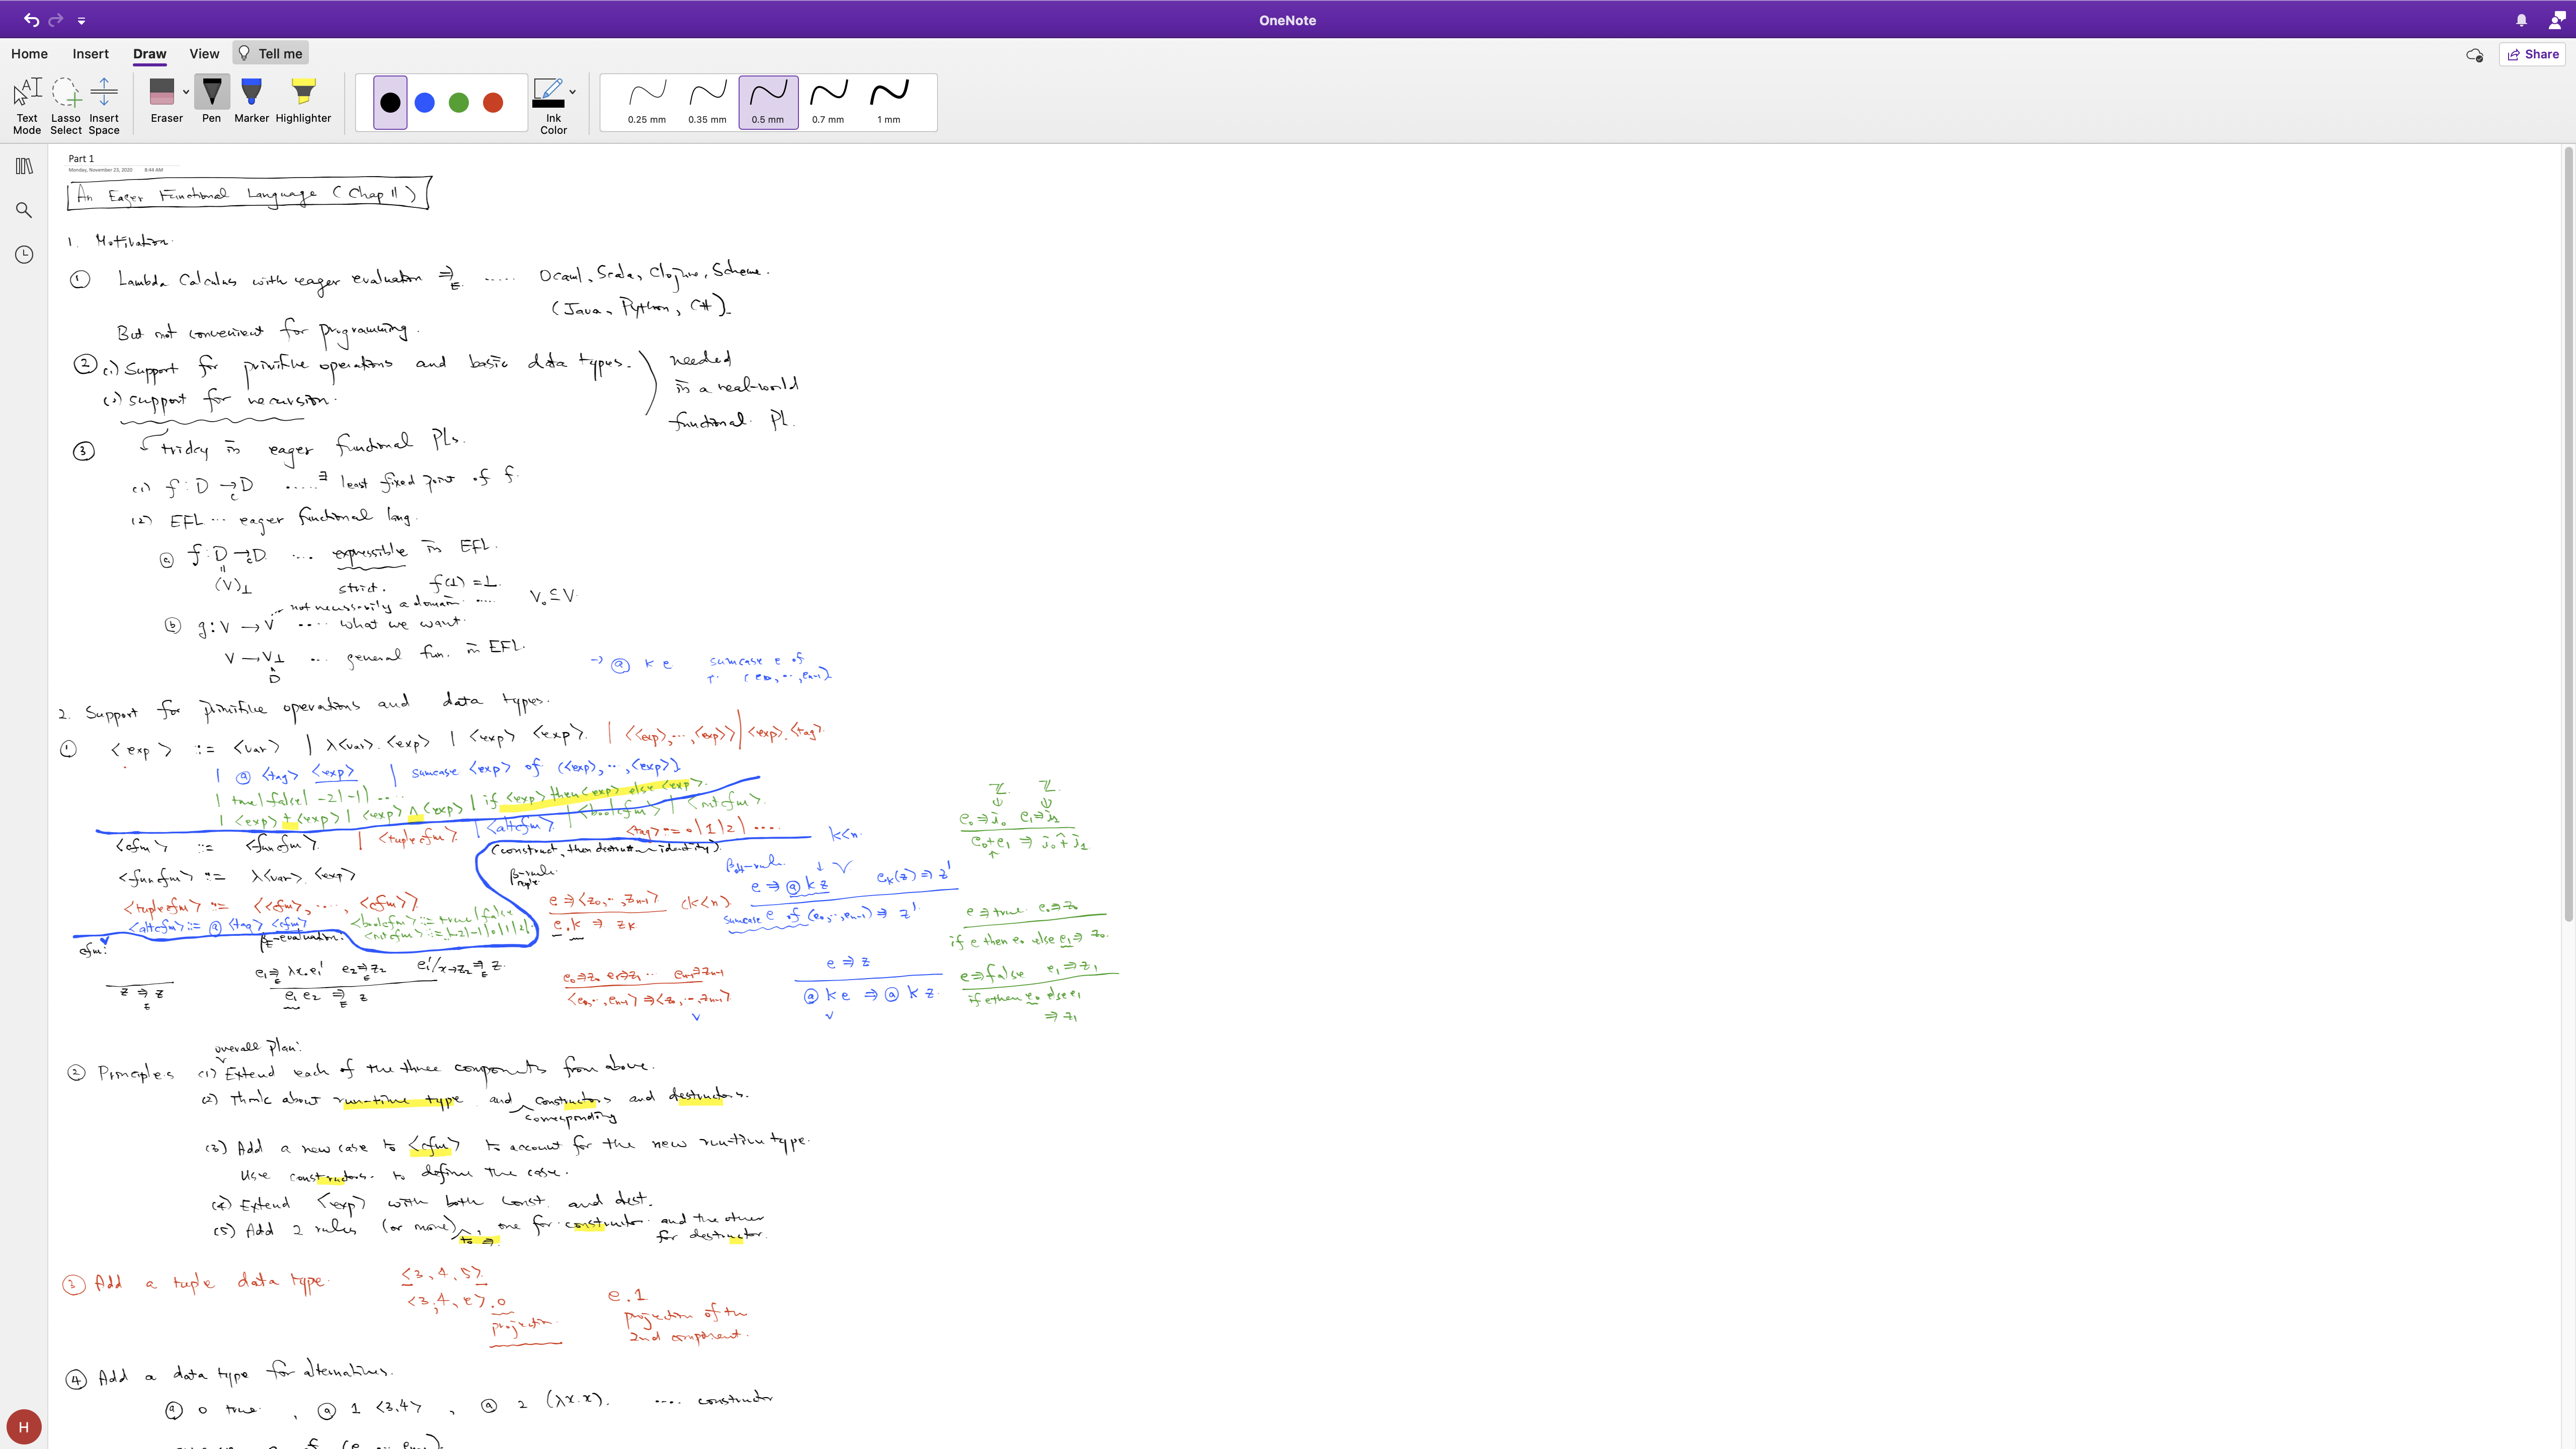 OneNote
Home Insert Draw View Tell me
Share
Text Mode
Lasso Select
Insert Space
Eraser
Pen
Marker
Highlighter
Ink Color
0.25 mm
0.35 mm
0.5 mm
0.7 mm
1 mm
Part 1
Monday, November 23, 2020 8:44 AM
An Eager Functional Language (Chap 11)
1. Motivation.
① Lambda Calculus with eager evaluation ⇒E ..... Ocaml, Scala, Clojure, Scheme.
(Java, Python, C#)
But not convenient for programming.
② (1) Support for primitive operations and basic data types.
(2) support for recursion.
needed
in a real-world
functional PL.
③ tricky in eager functional PLs.
(1) f : D →c D ..... ∃ least fixed point of f.
(2) EFL ... eager functional lang.
ⓐ f : D →c D .... expressible in EFL.
(V)⊥ strict. f(⊥) = ⊥.
not necessarily a domain .... V₀ ⊆ V
ⓑ g : V → V .... what we want.
V → V⊥ ... general fun. in EFL.
D
→ @ k e sumcase e of
(e0, .., en-1)
2. Support for primitive operations and data types.
① <exp> ::= <var> | λ<var>. <exp> | <exp> <exp>. | <<exp>, .., <exp>> | <exp>.<tag>
| @ <tag> <exp> | sumcase <exp> of (<exp>, .., <exp>)
| true | false | -2 | -1 | ....
| if <exp> then <exp> else <exp>.
| <exp> + <exp> | <exp> ∧ <exp>
<cfm> ::= <funcfm> | <tuplecfm> | <altcfm> | <boolcfm> | <intcfm>.
<tag> ::= 0 | 1 | 2 | ....
k<n.
(construct, then destruct ~ identity).
<funcfm> ::= λ<var>. <exp>
<tuplecfm> ::= <<cfm>, ..., <cfm>>
<altcfm> ::= @ <tag> <cfm>
<boolcfm> ::= true | false
<intcfm> ::= ..|-2|-1|0|1|2|..
β-rule
e ⇒ <z0, .., zn-1> (k<n)
e.k ⇒ zk
β-rule.
e ⇒ @ k z ek(z) ⇒ z'
sumcase e of (e0, .., en-1) ⇒ z'
ℤ ℤ
e0 ⇒ i0 e1 ⇒ i1
e0+e1 ⇒ i0 +̂ i1
e ⇒ true e0 ⇒ z0
if e then e0 else e1 ⇒ z0.
cfm:
z ⇒E z
βE-evaluation.
e1 ⇒E λx.e1' e2 ⇒E z2 e1'/x→z2 ⇒E z.
e1 e2 ⇒E z
e0 ⇒ z0 e1 ⇒ z1 ... en-1 ⇒ zn-1
<e0, .., en-1> ⇒ <z0, .., zn-1>
e ⇒ z
@ k e ⇒ @ k z
e ⇒ false e1 ⇒ z1
if e then e0 else e1
⇒ z1
overall plan:
② Principles (1) Extend each of the three components from above.
(2) Think about run-time type and constructors and destructors.
corresponding
(3) Add a new case to <cfm> to account for the new run-time type.
Use constructors to define the case.
(4) Extend <exp> with both const. and dest.
(5) Add 2 rules (or more) to ⇒, one for constructor and the other
for destructor.
③ Add a tuple data type. <3, 4, 5>
<3, 4, e>.0
projection.
e.1
projection of the
2nd component.
④ Add a data type for alternatives.
@ 0 true , @ 1 <3,4> , @ 2 (λx.x). .... constructor
H